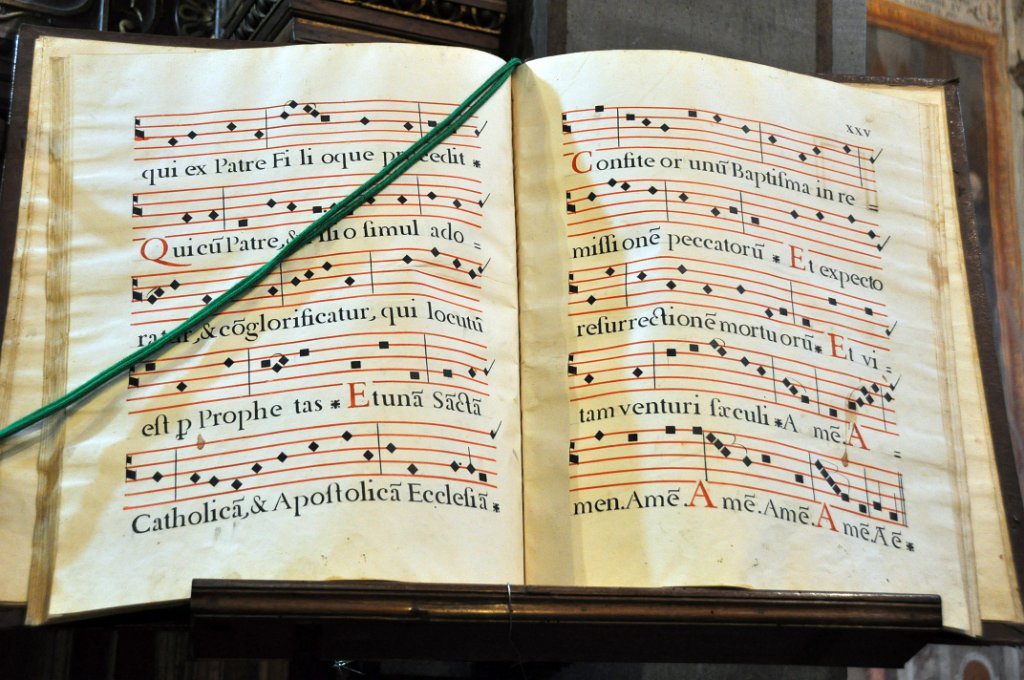 qui ex Patre Fi li oque procedit *
Quicū Patre, & Filio simul ado =
ratur, & cōglorificatur, qui locutū
est ꝑ Prophe tas * Et unā Sāctā
Catholicā, & Apostolicā Ecclesiā *
xxv
Confite or unū Baptisma in re
missi onē peccatorū * Et expecto
resurrectionē mortuorū * Et vi =
tam venturi sæculi * A mē. A =
men. Amē. A mē. Amē. A mē. A ē *